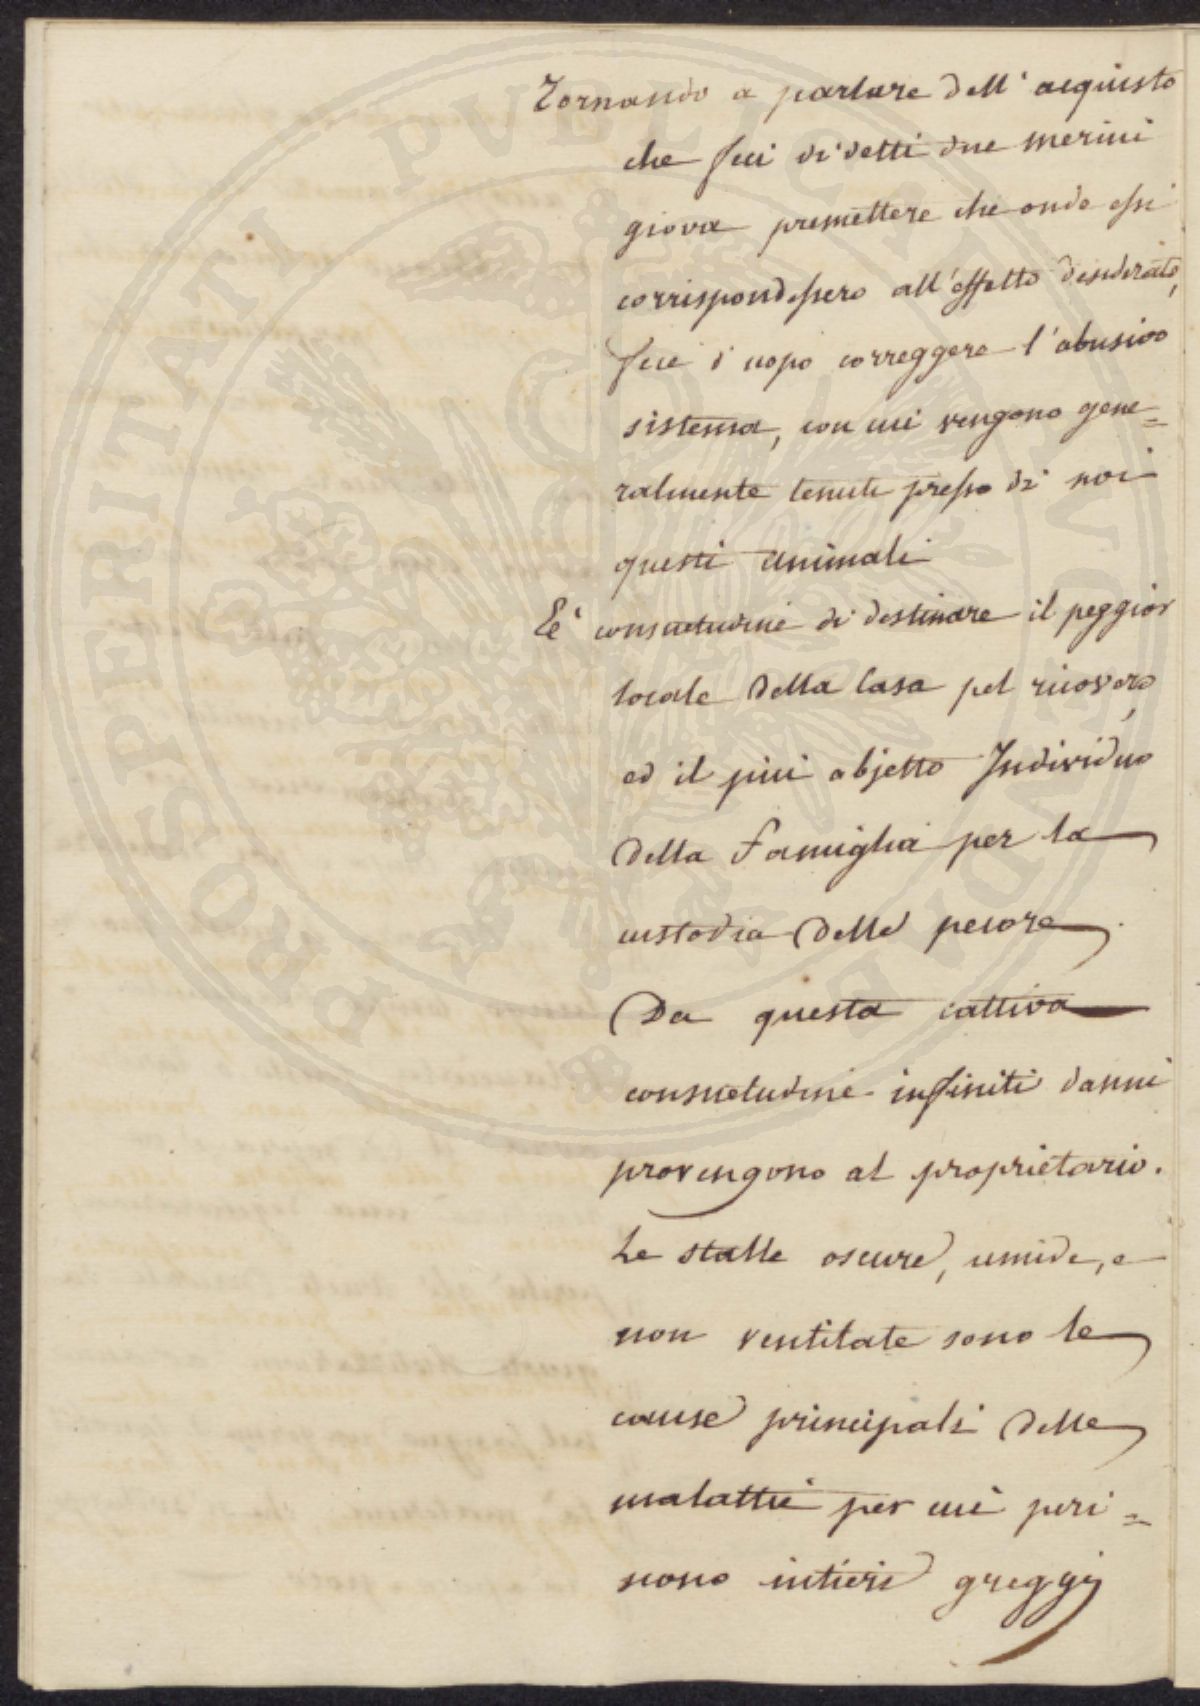 Tornando a parlare dell' acquisto
che feci di detti due merini
giova premettere che onde essi
corrispondessero all' effetto desiderato,
fece d' uopo correggere l' abusivo
sistema, con cui vengono gene=
ralmente tenuti presso di noi
questi animali
E' consuetudine di destinare il peggior
locale della Casa pel ricovero,
ed il più abjetto Individuo
della Famiglia per la
custodia delle pecore.
Da questa cattiva
consuetudine infiniti danni
provengono al proprietario.
Le stalle oscure, umide, e
non ventilate sono le
cause principali delle
malattie per cui peri=
scono intieri greggi
PROSPERITATI PVBLICAE